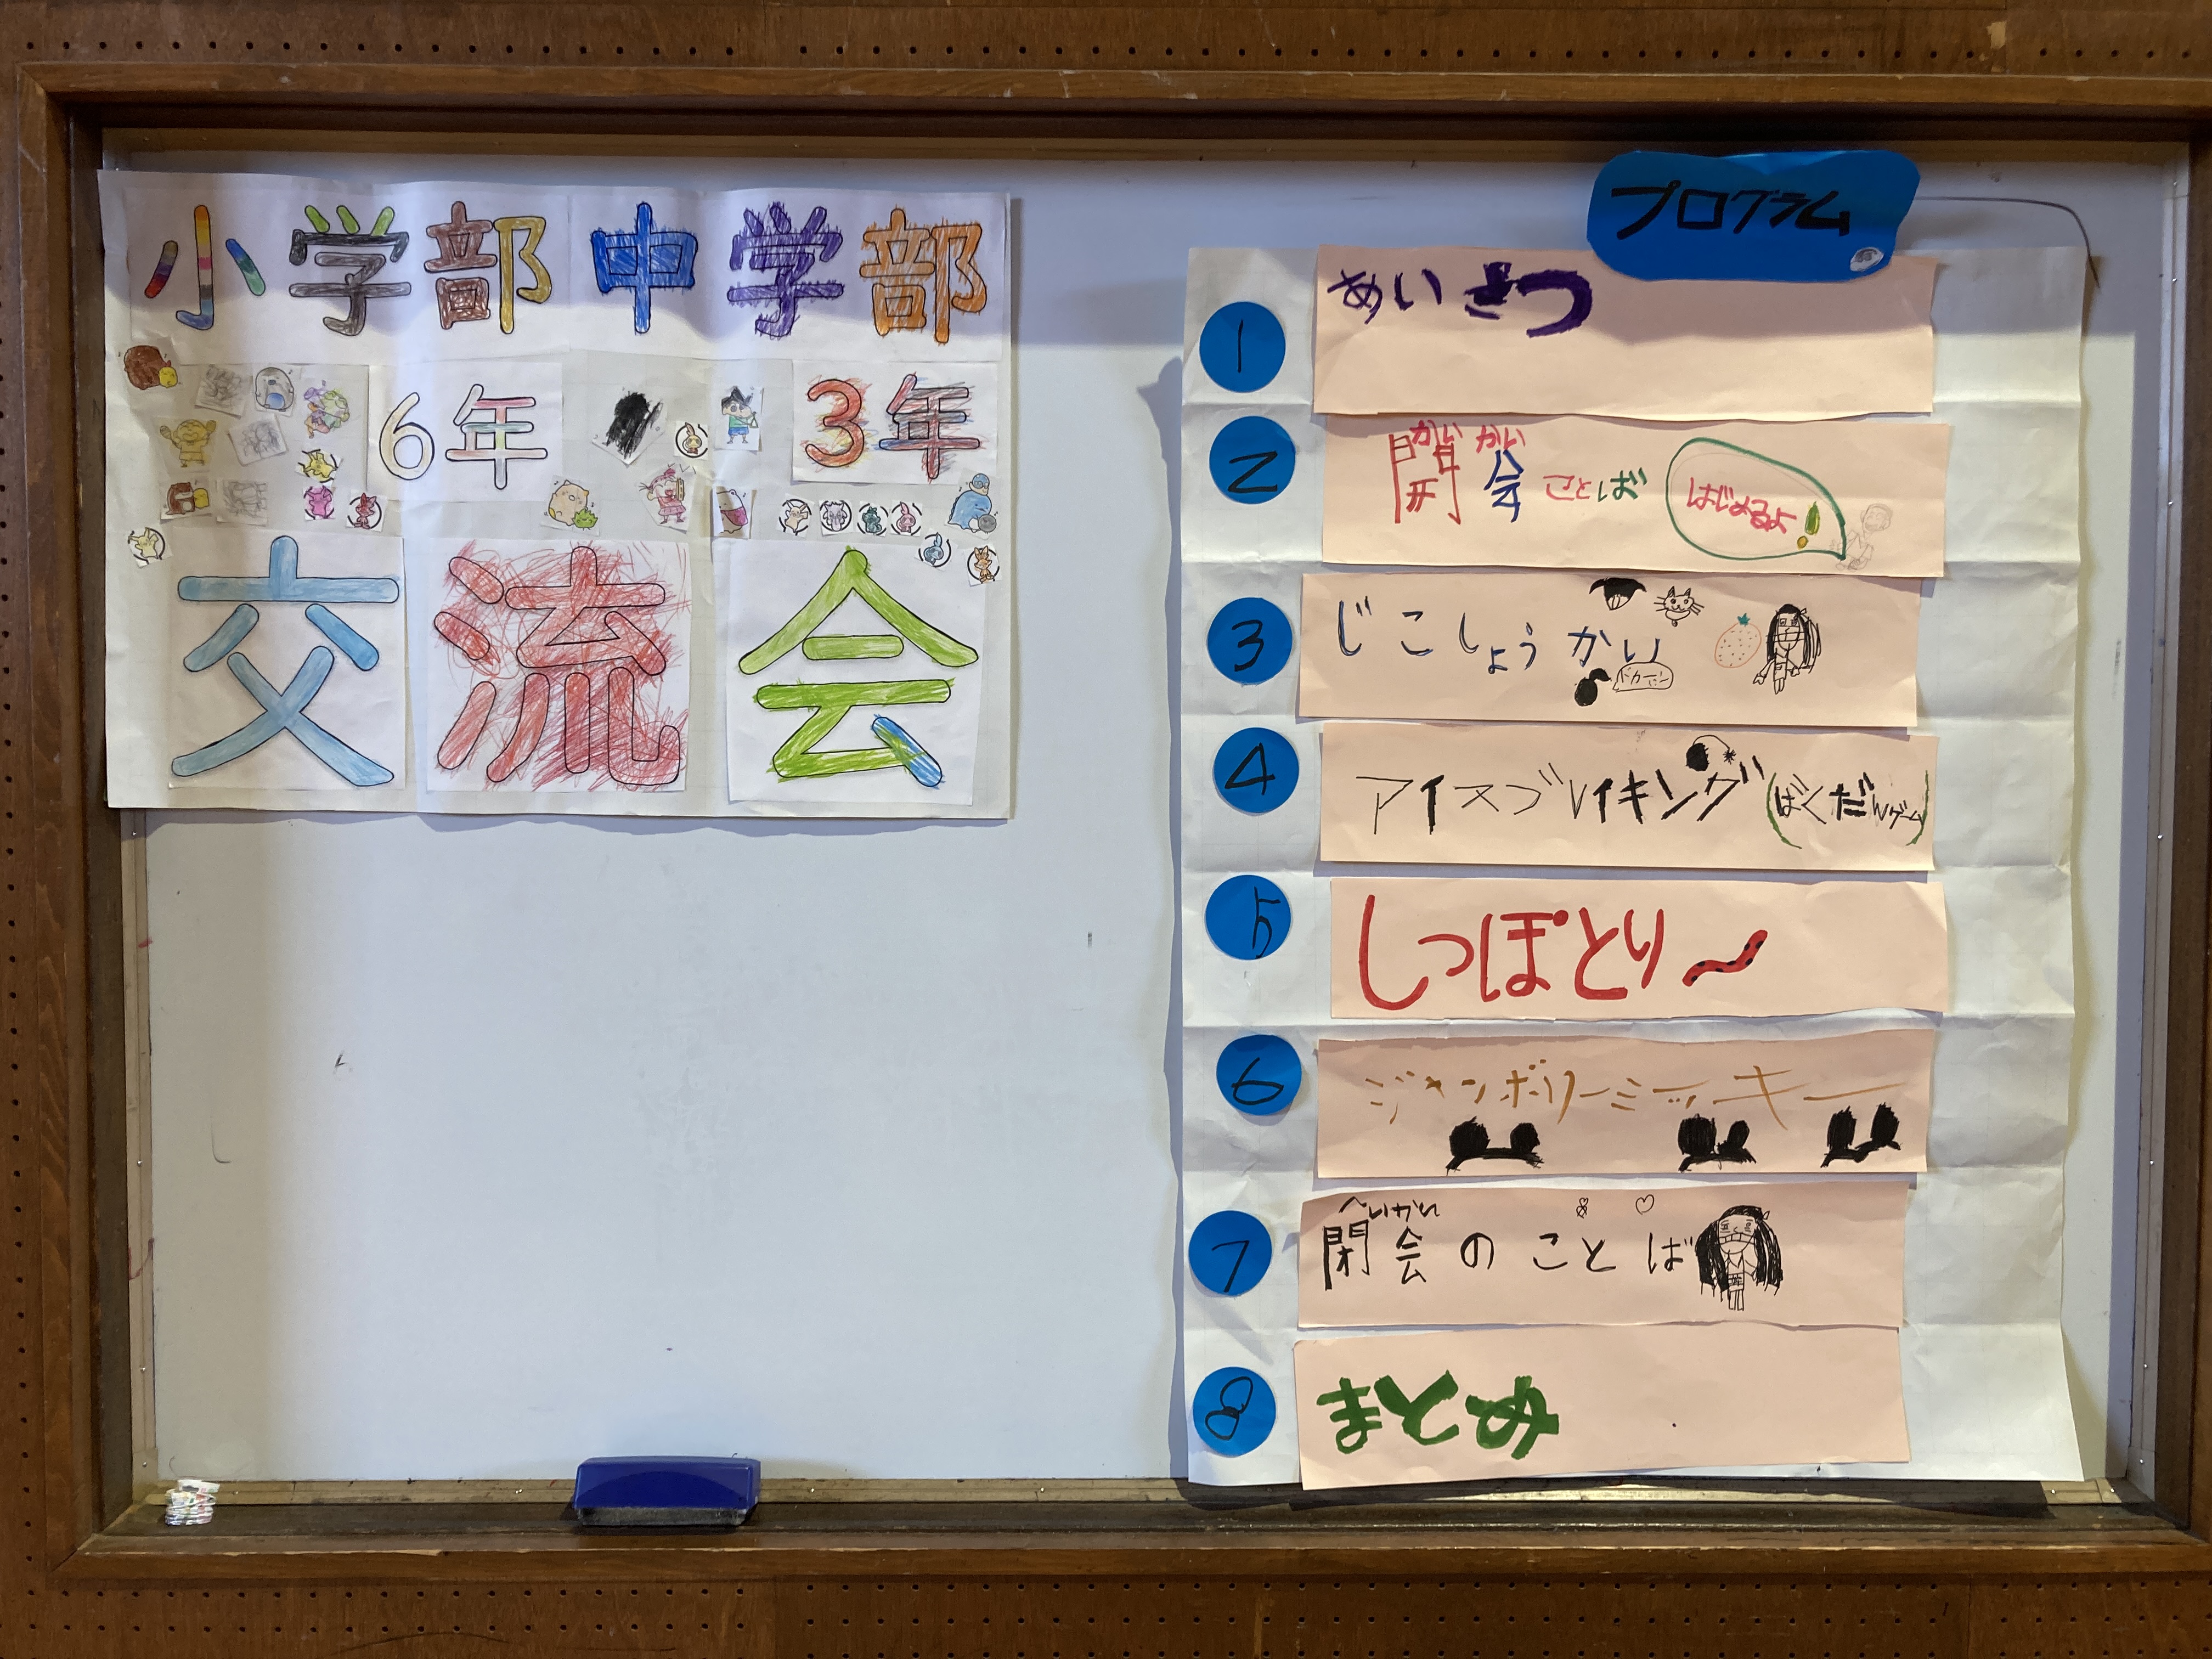 小学部中学部
6年 3年
交流会
プログラム
1 あいさつ
2 開会ことば はじめるよ!
かいかい
3 じこしょうかい
ドカーン
4 アイスブレイキング(ばくだんゲーム)
5 しっぽとり〜
6 ジャンボリーミッキー
7 閉会のことば
へいかい
8 まとめ